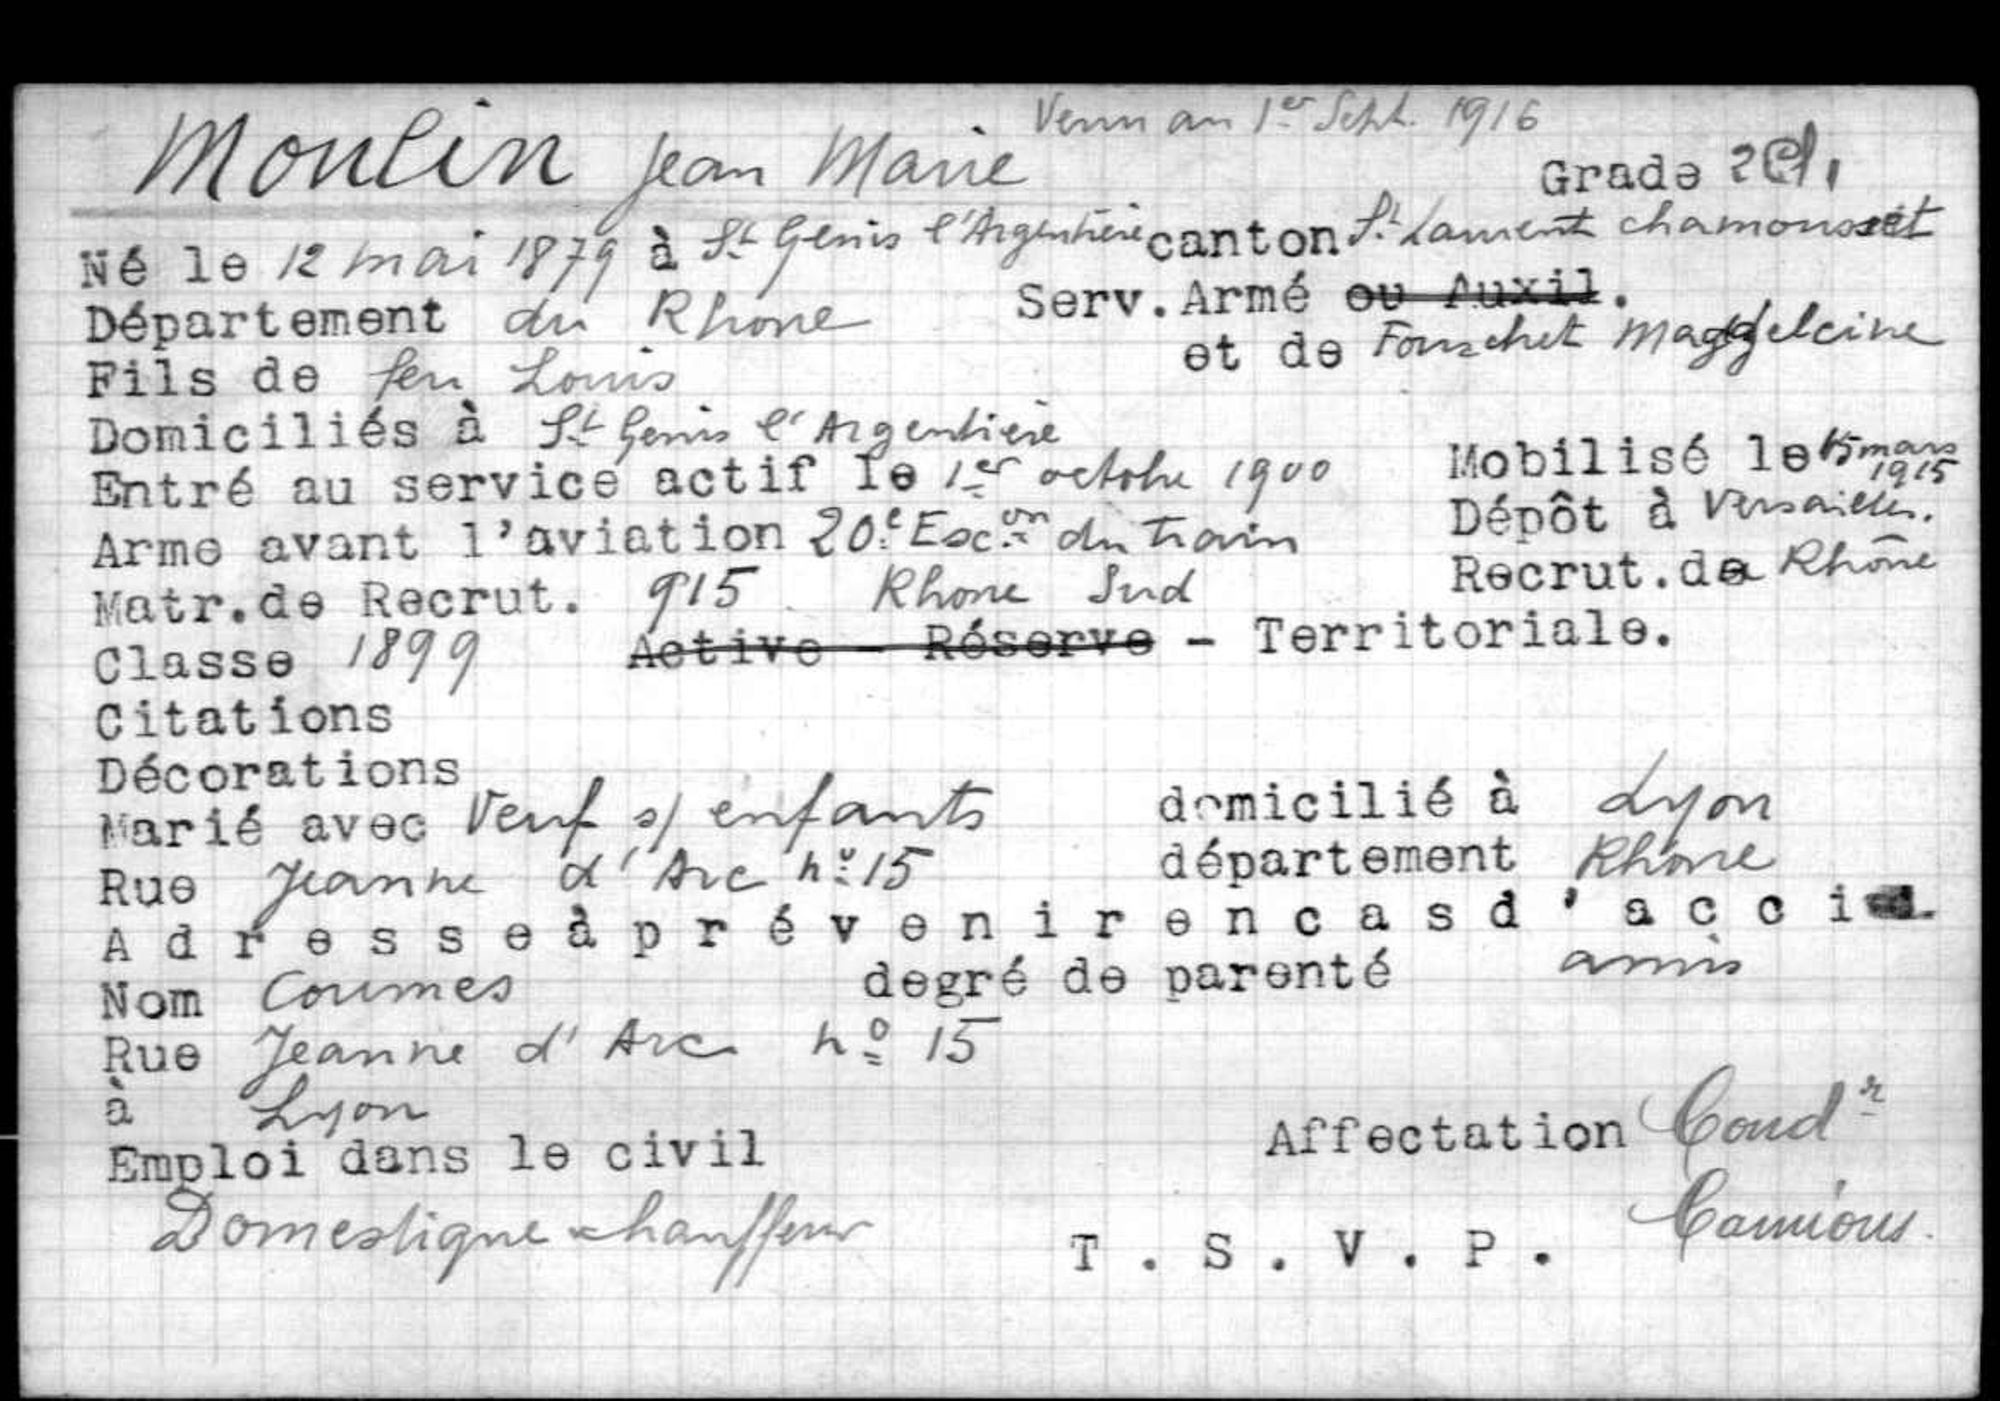 Venu au 1er Sept. 1916
Moulin Jean Marie Grade 2 Cl.
Né le 12 mai 1879 à St Genis l'Argentière canton St Laurent chamousset
Département du Rhone Serv. Armé ou Auxil.
Fils de feu Louis et de Fouchet Magdeleine
Domiciliés à St Genis l'Argentière
Entré au service actif le 1er octobre 1900 Mobilisé le 15 mars 1915
Arme avant l'aviation 20e Escon du Train Dépôt à Versailles.
Matr. de Recrut. 915 Rhone Sud Recrut. de Rhône
Classe 1899 Active - Réserve - Territoriale.
Citations
Décorations
Marié avec Veuf s/ enfants domicilié à Lyon
Rue Jeanne d'Arc no 15 département Rhone
Adresse à prévenir en cas d'accid.
Nom Coumes degré de parenté amis
Rue Jeanne d'Arc no 15
à Lyon
Emploi dans le civil Affectation Condr
Domestique chauffeur T.S.V.P. Camions.